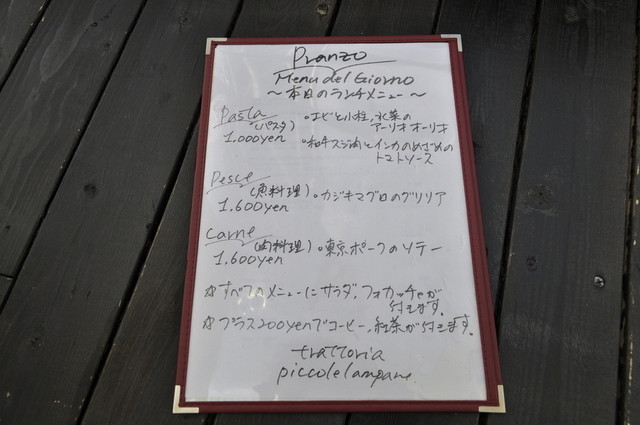 Pranzo
Menu del Giorno
～本日のランチメニュー～
Pasta (パスタ) 1.000yen
・エビと小柱、水菜のアーリオオーリオ
・和牛スジ肉とインカのめざめのトマトソース
Pesce (魚料理) 1.600yen
・カジキマグロのグリリア
Carne (肉料理) 1.600yen
・東京ポークのソテー
☆すべてのメニューにサラダ、フォカッチャが
付きます。
☆プラス200yenでコーヒー、紅茶が付きます。
trattoria
piccole lampare